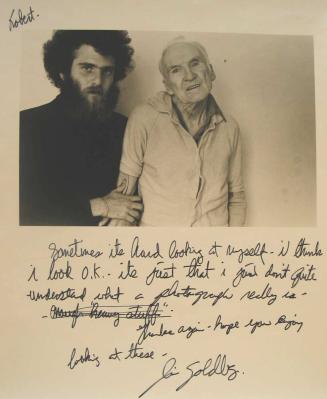 Robert.
Sometimes its hard looking at myself - i think
i look O.K. - its just that i just don't quite
understand what a photograph really is -
- Enough heavy stuff".
thanks again - hope you enjoy
looking at these -
Jim Goldberg.